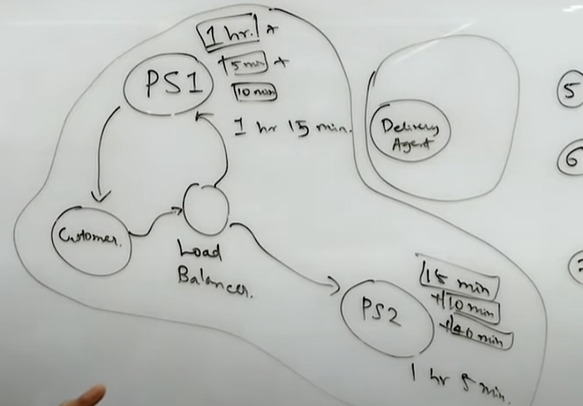 1 hr. +
15 min +
10 min
PS1
1 hr 15 min.
Delivery
Agent
5
6
Customer.
Load
Balancer.
15 min
+10 min
+40 min
PS2
1 hr 5 min.